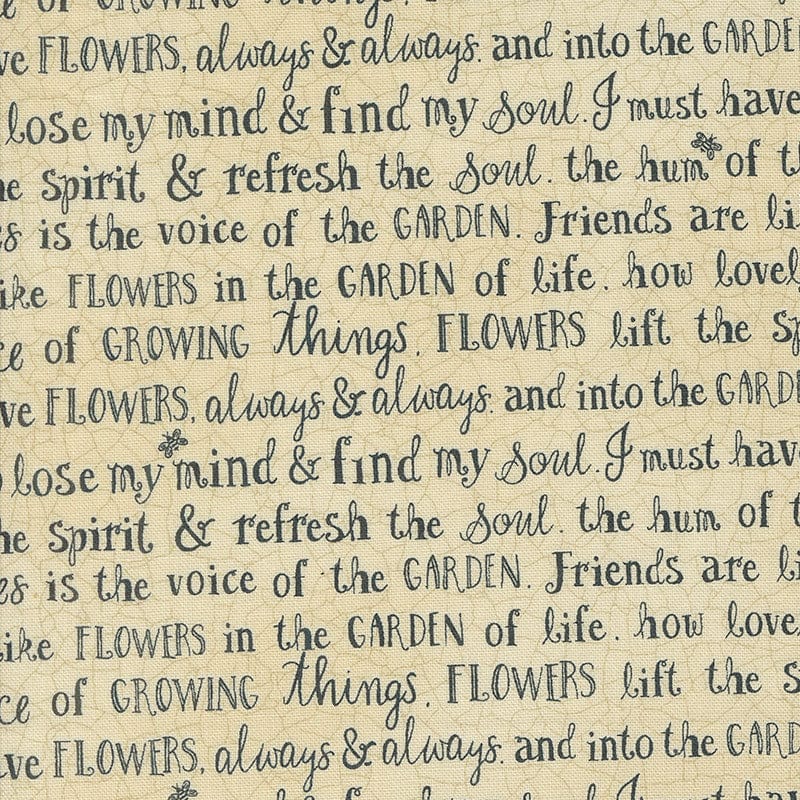 of GROWING things.
ve FLOWERS, always & always. and into the GARDE
lose my mind & find my soul. I must have
he spirit & refresh the soul. the hum of t
es is the voice of the GARDEN. Friends are li
ike FLOWERS in the GARDEN of life. how lovel
ce of GROWING things. FLOWERS lift the sp
ve FLOWERS, always & always. and into the GARDE
o lose my mind & find my soul. I must hav
he spirit & refresh the soul. the hum of t
es is the voice of the GARDEN. Friends are li
ike FLOWERS in the GARDEN of life. how love
ce of GROWING things. FLOWERS lift the s
ve FLOWERS, always & always. and into the GARD